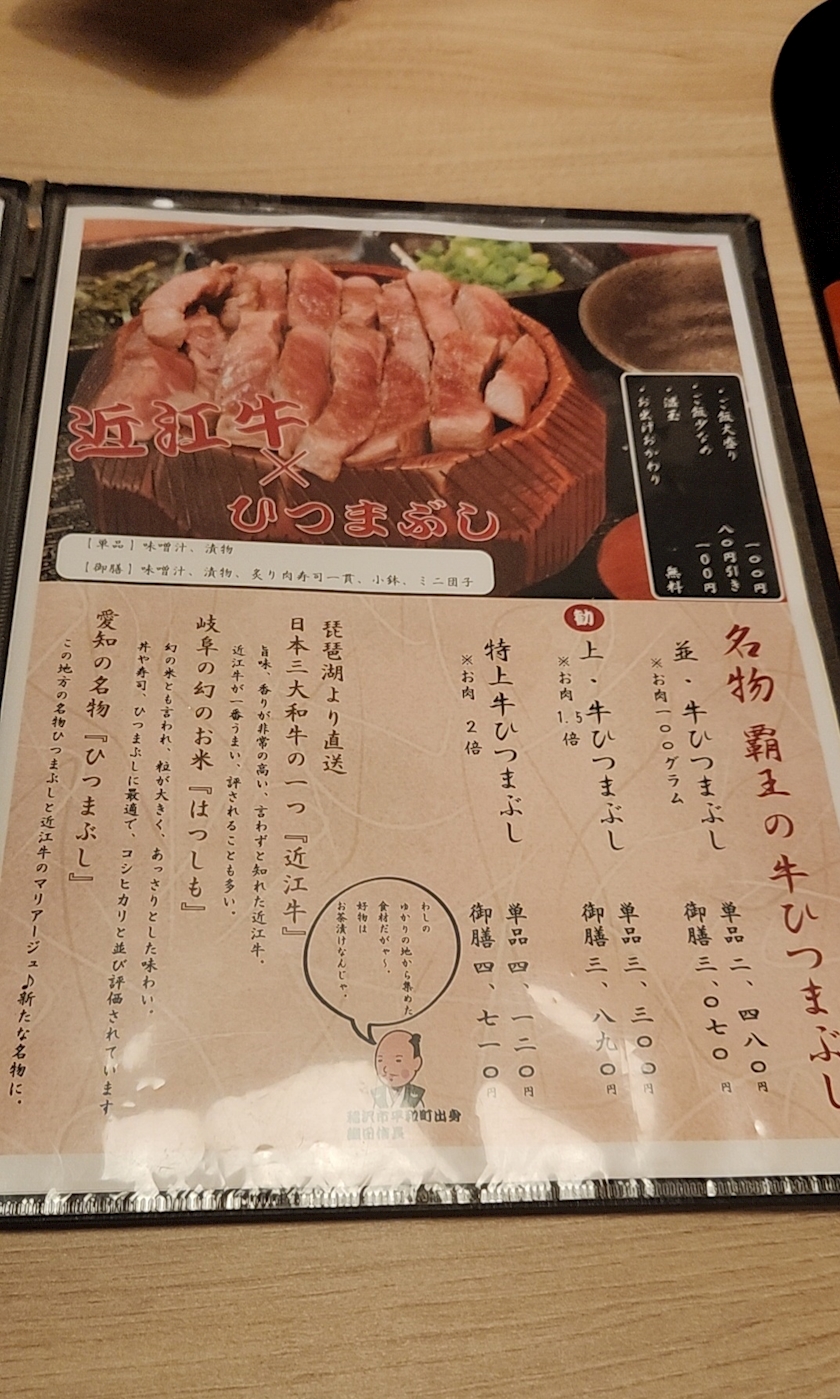 近江牛
×
ひつまぶし
【単品】味噌汁、漬物
【御膳】味噌汁、漬物、炙り肉寿司一貫、小鉢、ミニ団子
・ご飯大盛り 一〇〇円
・ご飯少なめ 八〇円引き
・温玉 一〇〇円
・お出汁おかわり 無料
名物 覇王の牛ひつまぶし
並・牛ひつまぶし
※お肉一〇〇グラム
単品 二、四八〇円
御膳 三、〇七〇円
勧
上・牛ひつまぶし
※お肉1.5倍
単品 三、三〇〇円
御膳 三、八九〇円
特上牛ひつまぶし
※お肉 2倍
単品 四、一二〇円
御膳 四、七一〇円
わしの
ゆかりの地から集めた
食材だがや〜、
好物は
お茶漬けなんじゃ、
稲沢市平和町出身
織田信長
琵琶湖より直送
日本三大和牛の一つ『近江牛』
旨味、香りが非常の高い、言わずと知れた近江牛、
近江牛が一番うまい、評されることも多い、
岐阜の幻のお米『はつしも』
幻の米とも言われ、粒が大きく、あっさりとした味わい、
丼や寿司、ひつまぶしに最適で、コシヒカリと並び評価されています
愛知の名物『ひつまぶし』
この地方の名物ひつまぶしと近江牛のマリアージュ♪新たな名物に、